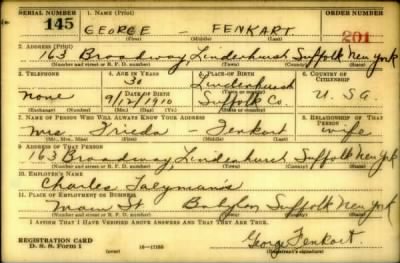 SERIAL NUMBER 1. NAME (Print) ORDER NUMBER
145 GEORGE - FENKART 201
(First) (Middle) (Last)
2. ADDRESS (Print)
163 Broadway Lindenhurst Suffolk New York
(Number and street or R. F. D. number) (Town) (County) (State)
3. TELEPHONE 4. AGE IN YEARS 5. PLACE OF BIRTH 6. COUNTRY OF CITIZENSHIP
30 Lindenhurst
none 9/12/1910 Suffolk Co. U.S.A.
(Exchange) (Number) (Mo.) (Day) (Yr.) (State or country)
7. NAME OF PERSON WHO WILL ALWAYS KNOW YOUR ADDRESS 8. RELATIONSHIP OF THAT PERSON
Mrs Frieda - Fenkart wife
(Mr., Mrs., Miss) (First) (Middle) (Last)
9. ADDRESS OF THAT PERSON
163 Broadway Lindenhurst Suffolk New York
(Number and street or R. F. D. number) (Town) (County) (State)
10. EMPLOYER'S NAME
Charles
11. PLACE OF EMPLOYMENT OR BUSINESS
Main St Babylon Suffolk New York
(Number and street or R. F. D. number) (Town) (County) (State)
I AFFIRM THAT I HAVE VERIFIED ABOVE ANSWERS AND THAT THEY ARE TRUE.
REGISTRATION CARD George Fenkart
D. S. S. Form 1 (over) (Registrant's signature)